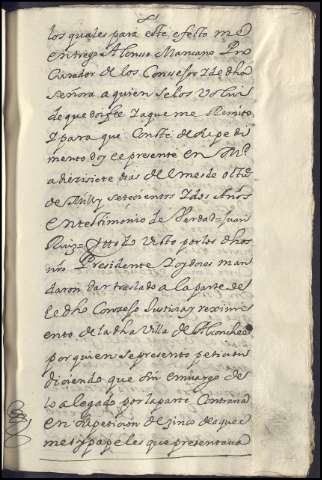 los quales para este efeto me
entrego Alonso Manzano Pro
Curador de los Consejos I de dha
Señora a quien se los Volui
de que doi fee I a que me Remito
I para que Conste de su pedi
mento doy el presente en M.d
a dezisiete dias del mes de otre
de Mill y setecientos I dos Años
en testimonio de Verdad= Juan
Ruiz= I Visto por los dhos
nro Presidente I oydores man
daron dar treslado a la parte de
el dho Conzejo Justizia y reximi
ento de la dha Villa de
por quien se presento petizion
diciendo que sin embargo de
lo alegado por la parte Contraria
en Repeticion de zinco de aquel
mes y papeles que presentaua